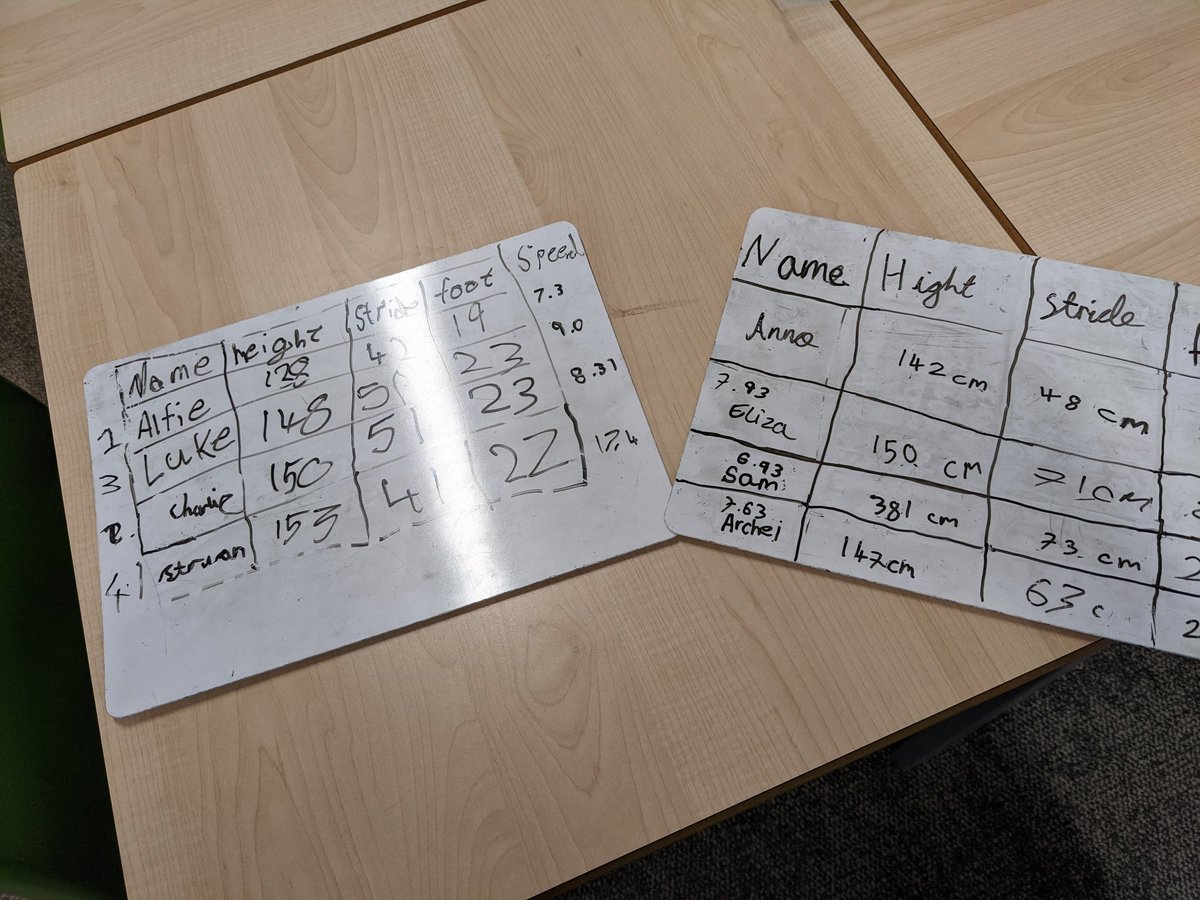 Name height Stride foot Speed
1 Alfie 128 42 19 7.3
3 Luke 148 23 9.0
2. Charlie 150 51 23 8.31
4 struan 153 41 22
Name Hight Stride
Anna 142 cm 48 cm
7.93
Eliza 150 cm 71cm
6.93
Sam 381 cm 73 cm
7.63
Archei 147cm 63 c